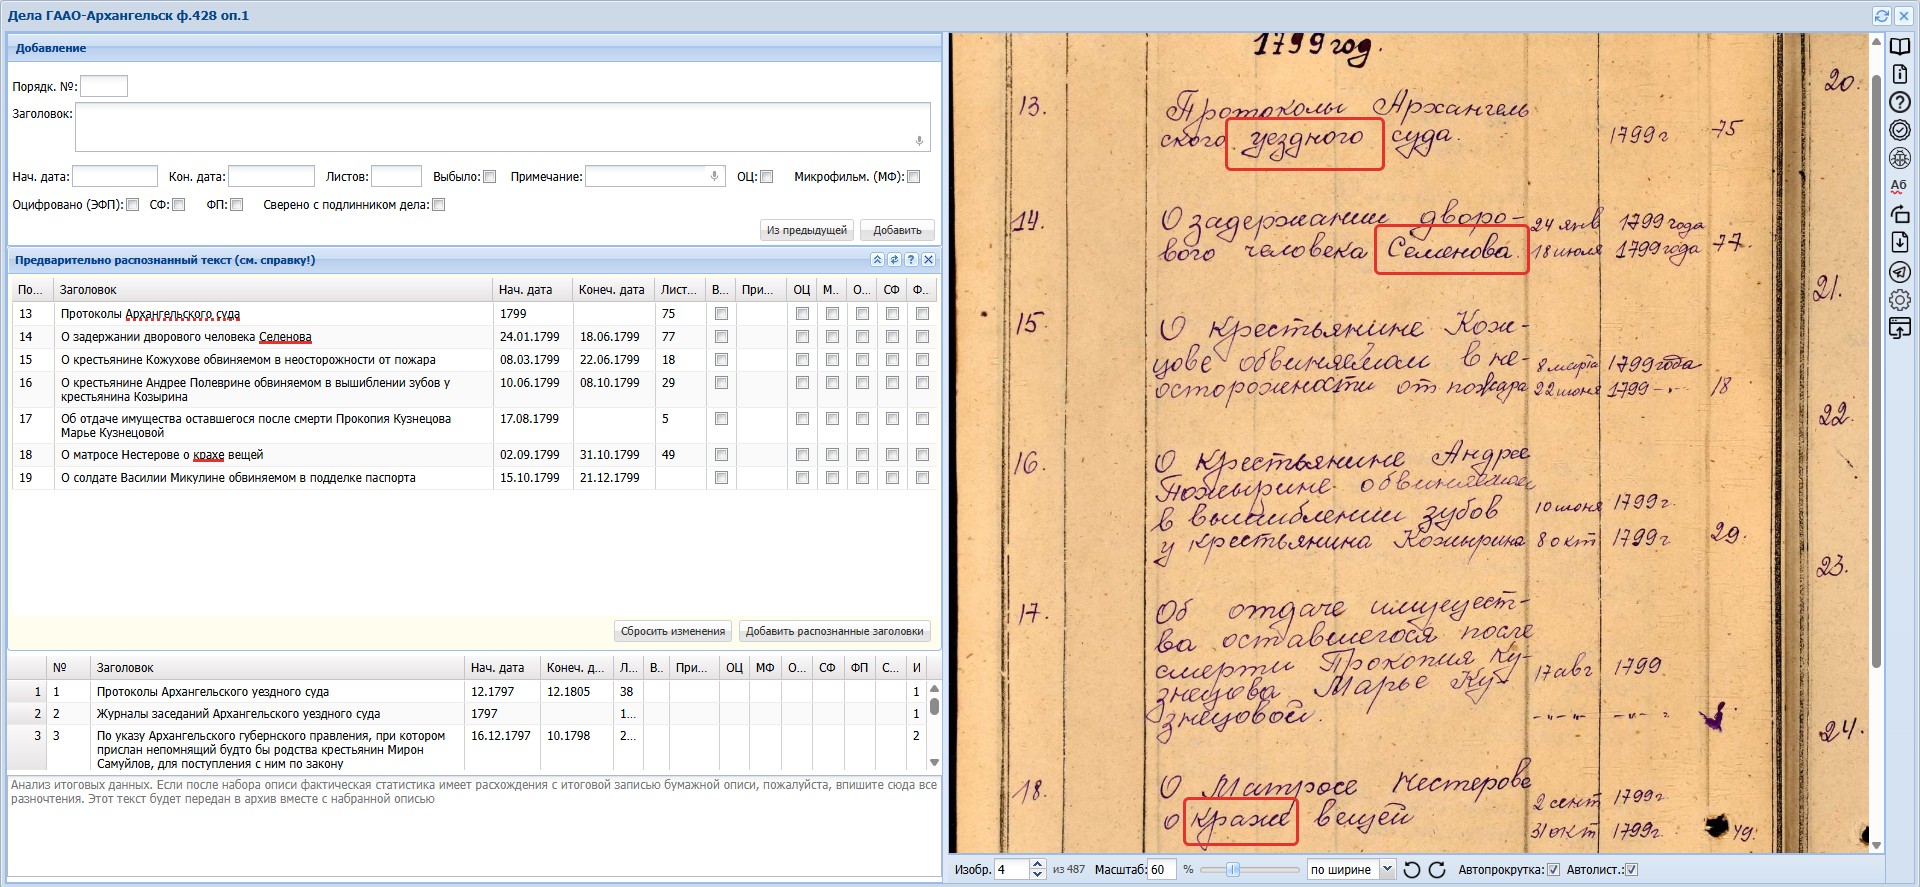 Дела ГААО-Архангельск ф.428 оп.1
Добавление
Порядк. №:
Заголовок:
Нач. дата: Кон. дата: Листов: Выбыло: Примечание: ОЦ: Микрофильм. (МФ):
Оцифровано (ЭФП): СФ: ФП: Сверено с подлинником дела:
Из предыдущей Добавить
Предварительно распознанный текст (см. справку!)
По... Заголовок Нач. дата Конеч. дата Лист... В... При... ОЦ М.. О... СФ Ф..
13 Протоколы Архангельского суда 1799 75
14 О задержании дворового человека Селенова 24.01.1799 18.06.1799 77
15 О крестьянине Кожухове обвиняемом в неосторожности от пожара 08.03.1799 22.06.1799 18
16 О крестьянине Андрее Полеврине обвиняемом в вышиблении зубов у крестьянина Козырина 10.06.1799 08.10.1799 29
17 Об отдаче имущества оставшегося после смерти Прокопия Кузнецова Марье Кузнецовой 17.08.1799 5
18 О матросе Нестерове о крахе вещей 02.09.1799 31.10.1799 49
19 О солдате Василии Микулине обвиняемом в подделке паспорта 15.10.1799 21.12.1799
Сбросить изменения Добавить распознанные заголовки
№ Заголовок Нач. дата Конеч. д... Л... В.. При... ОЦ МФ О... СФ ФП С... И
1 1 Протоколы Архангельского уездного суда 12.1797 12.1805 38 1
2 2 Журналы заседаний Архангельского уездного суда 1797 1... 1
3 3 По указу Архангельского губернского правления, при котором 16.12.1797 10.1798 2... 2
прислан непомнящий будто бы родства крестьянин Мирон
Самуйлов, для поступления с ним по закону
Анализ итоговых данных. Если после набора описи фактическая статистика имеет расхождения с итоговой записью бумажной описи, пожалуйста, впишите сюда все
разночтения. Этот текст будет передан в архив вместе с набранной описью
1799 год.
13. Протоколы Архангель
ского уездного суда. 1799 г 75
14. О задержании дворо- 24 янв 1799 года
вого человека Семенова. 18 июля 1799 года 77.
15. О крестьянине Кож-
цове обвиняемом в не- 8 марта 1799 года
осторожности от пожара 22 июня 1799 -"- 18
16. О крестьянине Андрее
Пожырине обвиняемом
в вышиблении зубов 10 июня 1799 г.
у крестьянина Кожырина 8 окт 1799 г 29.
17. Об отдаче имущест-
ва оставшегося после
смерти Прокопия Ку-
знецова Марье Ку- 17 авг 1799
знецовой. -"-"- -"- г
18. О Матросе Нестерове
о краже вещей 2 сент 1799 г
31 окт 1799 г. 49.
20.
21.
22.
23.
24.
Аб
Изобр. 4 из 487 Масштаб: 60 % по ширине Автопрокрутка: Автолист.: